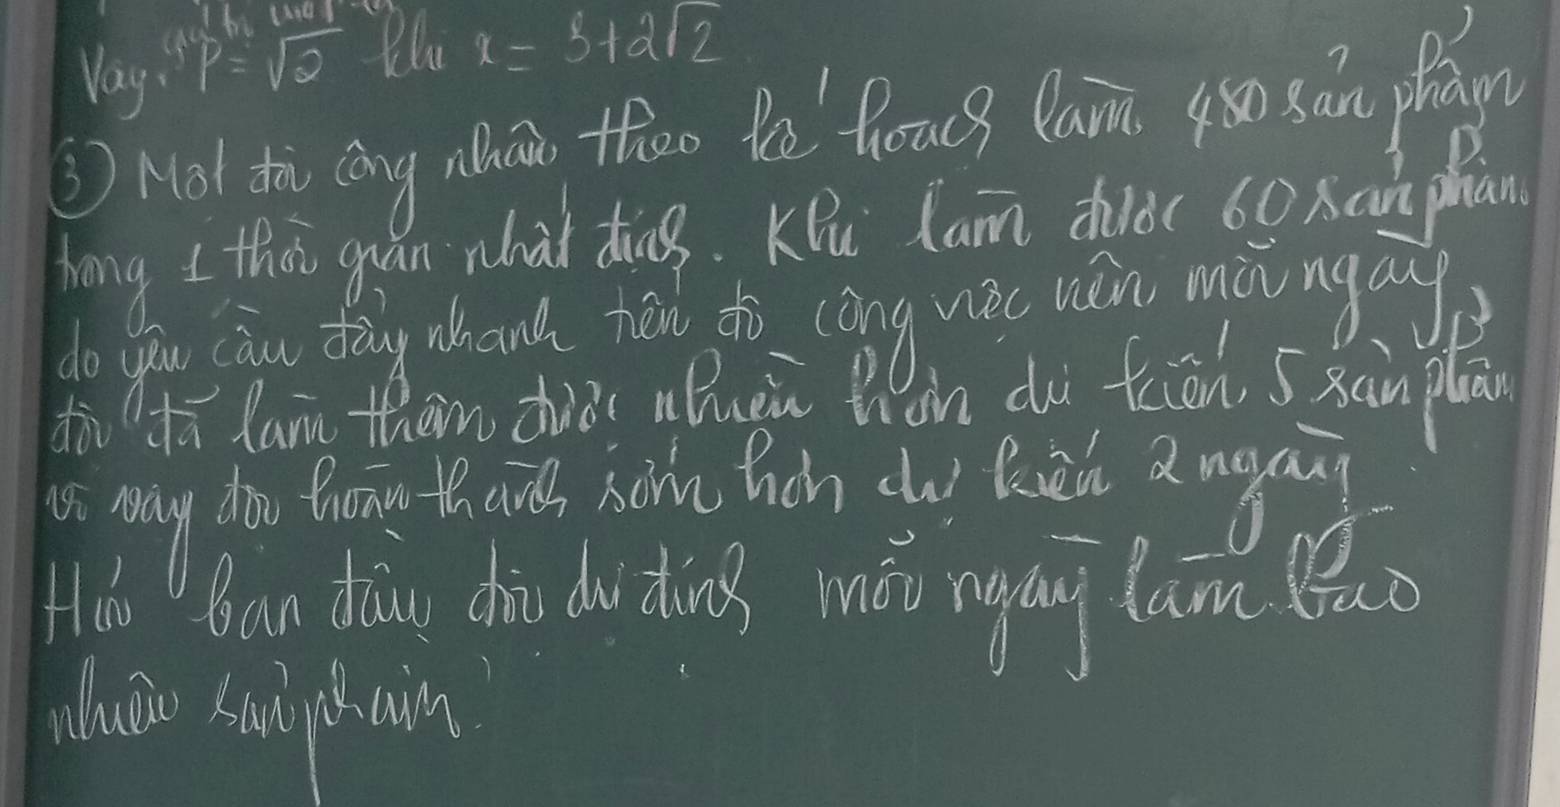 Vậy giá trị P = √2 khi x = 3+2√2
③ Một đội công nhân theo kế hoạch làm 480 sản phẩm
trong 1 thời gian nhất định. Khi làm được 60 sản phẩm
do yêu cầu đẩy nhanh tiến độ công việc nên mỗi ngày
đội đã làm thêm được nhiều hơn dự kiến 5 sản phẩm
vì vậy đội hoàn thành sớm hơn dự kiến 2 ngày
Hỏi ban đầu đội dự định mỗi ngày làm bao
nhiêu sản phẩm